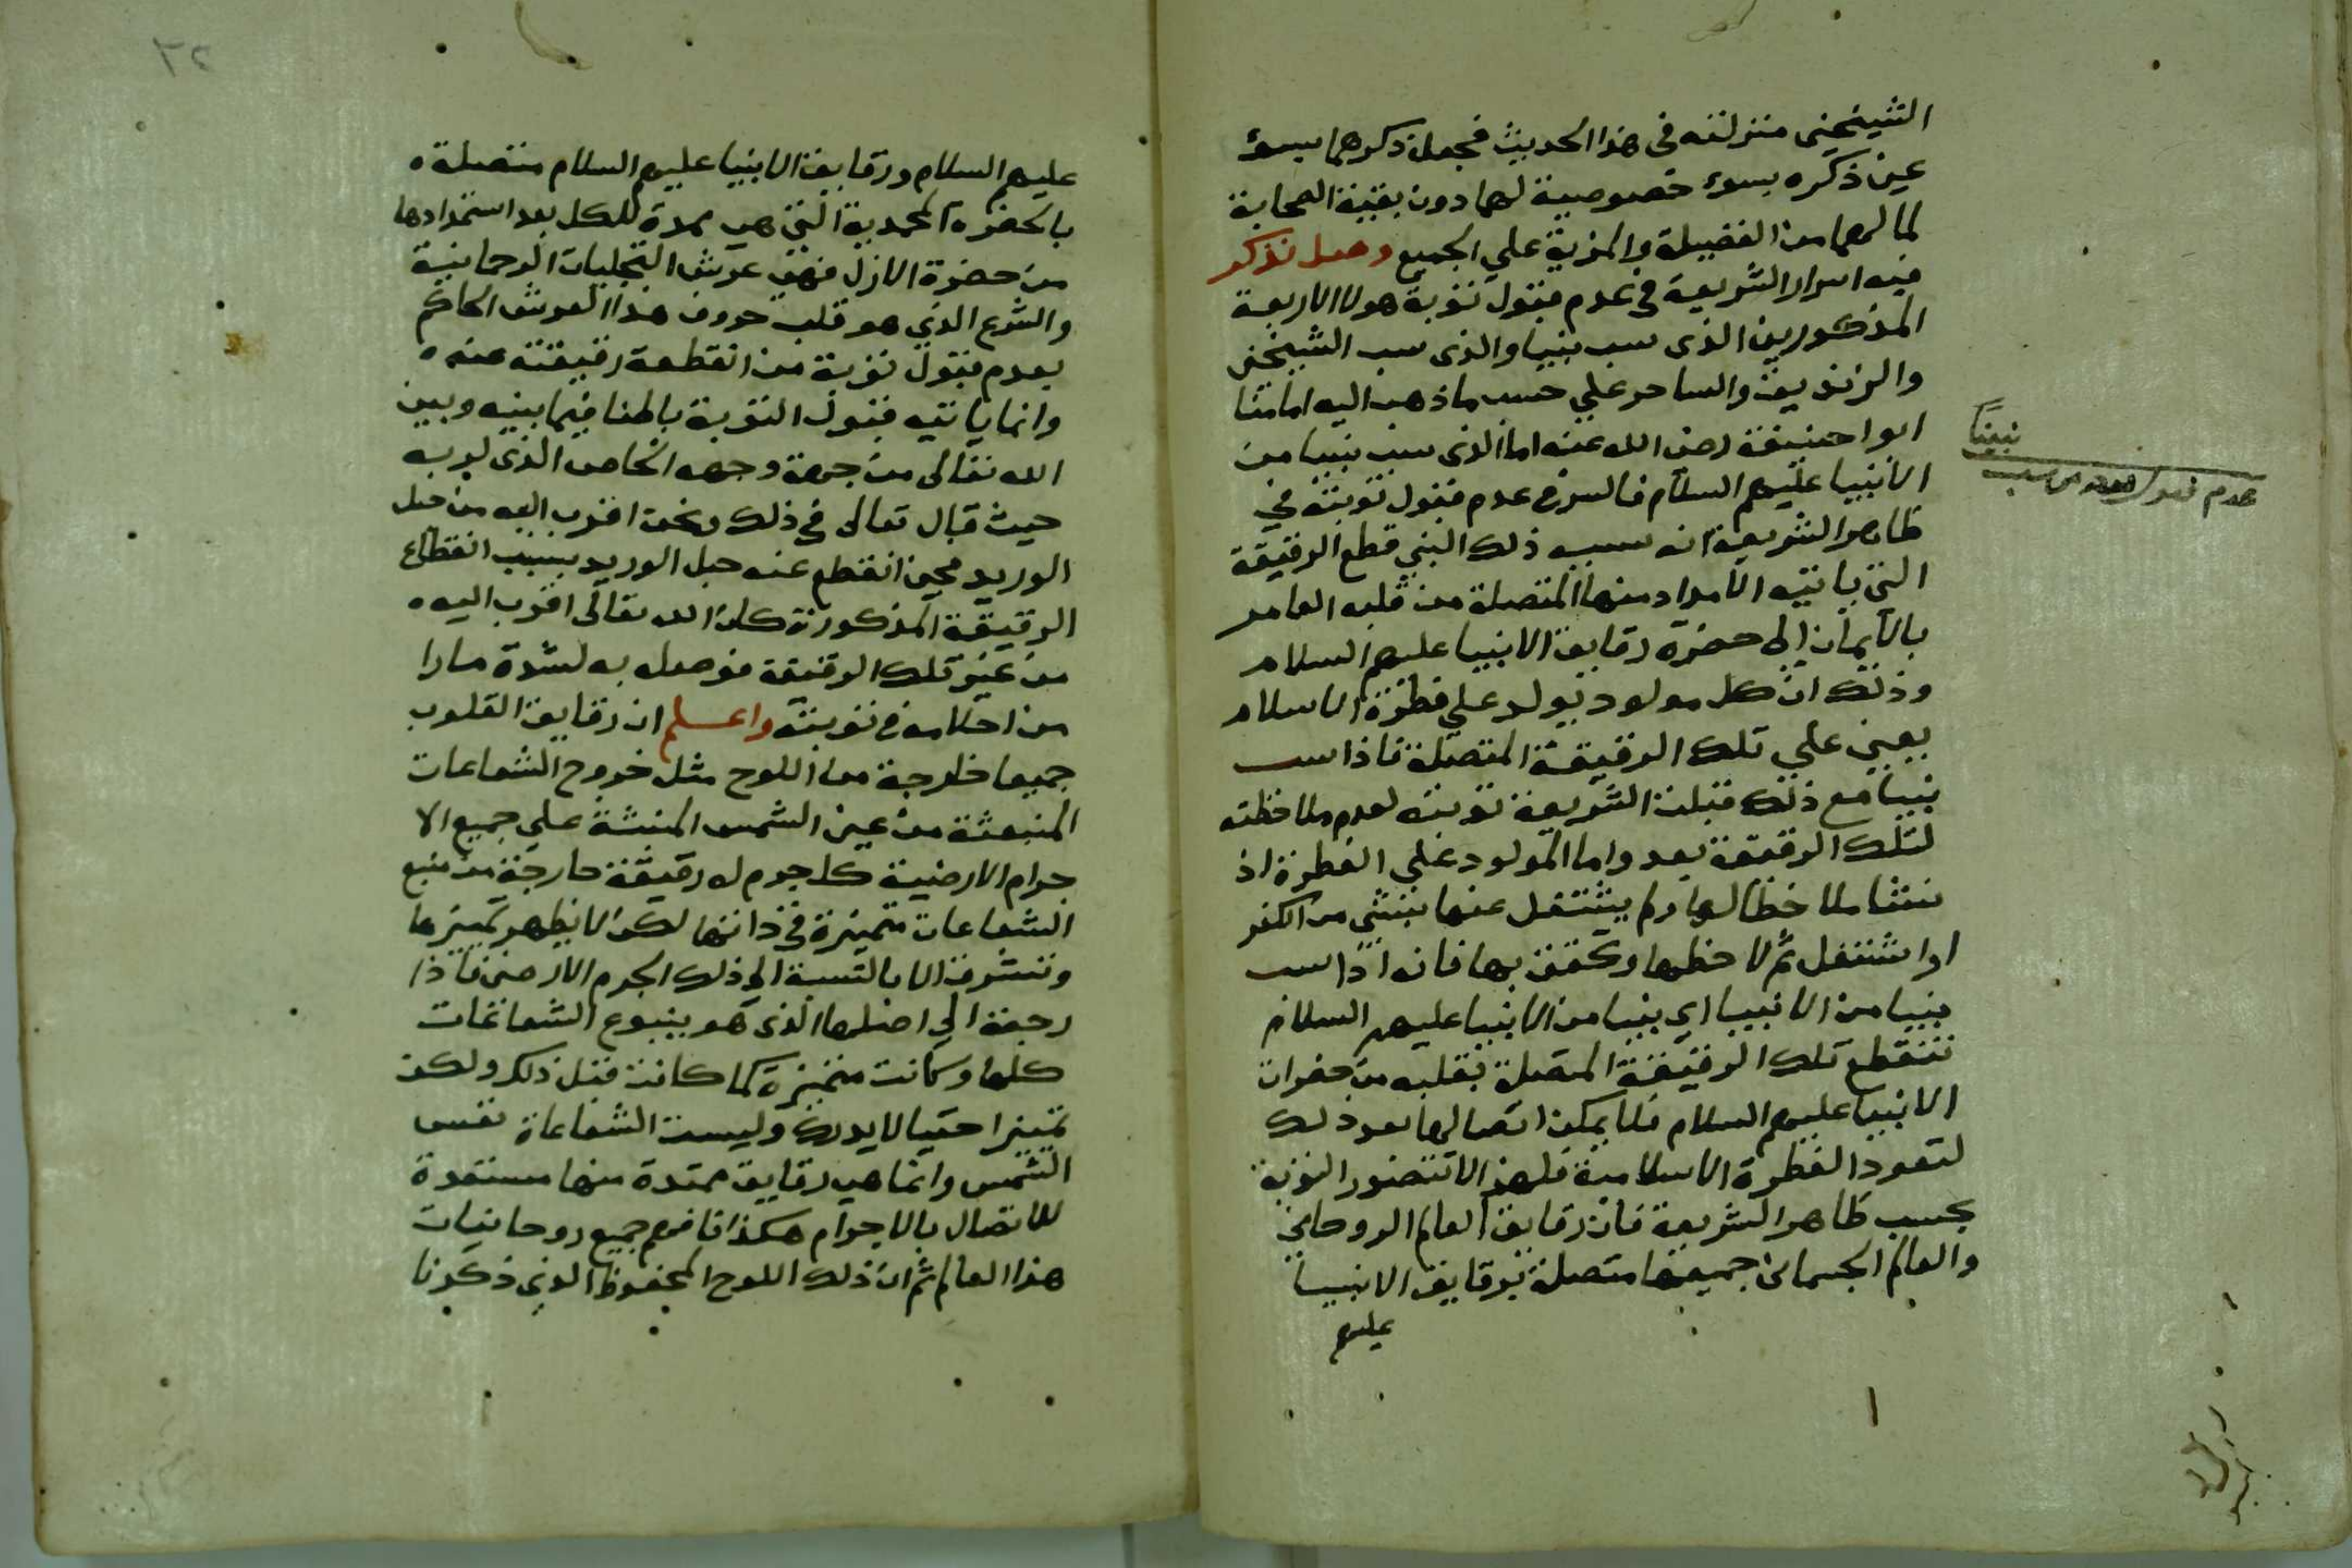 الشيخين منزلته في هذا الحديث فجعل ذكرهما بسوء
عين ذكره بسوء خصوصية لهما دون بقية الصحابة
لما لهما من الفضيلة والمزية علي الجميع وصل نذكر
فيه اسرار الشريعة في عدم قبول توبة هولا الاربعة
المذكورين الذي سب نبيا والذي سب الشيخين
والزنديق والساحر علي حسب ما ذهب اليه امامنا
ابو احنيفة رضي الله عنه اما الذي سب نبيا من
الانبيا عليهم السلام فالسر في عدم قبول توبته في
ظاهر الشريعة انه سببه ذلك النبي قطع الرقيقة
التي ياتيه الامداد منها المتصلة من قلبه العامر
بالايمان الي حضرة رقايق الانبيا عليهم السلام
وذلك ان كل مولود يولد علي فطرة الاسلام
يعني علي تلك الرقيقة المتصلة فاذا سب
نبيا مع ذلك قبلت الشريعة توبته لعدم ملاحظته
لتلك الرقيقة بعد واما المولود علي الفطرة اذ
نشا ملاحظا لها ولم يشتغل عنها بشي من الكفر
او اشتغل ثم لاحظها وتحقق بها فانه اذا سب
نبيا من الانبيا اي نبيا من الانبيا عليهم السلام
تنقطع تلك الرقيقة المتصلة بقلبه من حضرات
الانبيا عليهم السلام فلا يمكن اتصالها بعد ذلك
لتعود الفطرة الاسلامية فلهذا لا تتصور التوبة
بحسب ظاهر الشريعة فان رقايق العالم الروحاني
والعالم الجسماني جميعها متصلة برقايق الانبيا
عليهم
نبيًا
عدم قبول توبة من سب
٣٢
عليهم السلام ورقايق الانبيا عليهم السلام متصلة
بالحضرة المحمدية التي هي ممدة للكل بعد استمدادها
من حضرة الازل فهي عرش التجليات الرحمانية
والشرع الذي هو قلب حروف هذا العرش الحاكم
بعدم قبول توبة من انقطعة رقيقته عنه
وانما ياتيه قبول التوبة باطنا فيما بينه وبين
الله تعالي من جهة وجهه الخاص الذي لربه
حيث قال تعالي في ذلك ونحن اقرب اليه من حبل
الوريد فحين انقطع عنه حبل الوريد بسبب انقطاع
الرقيقة المذكورة كان الله تعالي اقرب اليه
من غير تلك الرقيقة فوصله به لشدة ما را
من اخلاصه في توبته واعلم ان رقايق القلوب
جميعا خارجة من اللوح مثل خروج الشعاعات
المنبعثة من عين الشمس المنبثة علي جميع الا
جرام الارضية كل جرم له رقيقة خارجة من منبع
الشعاعات متميزة في ذاتها لكن لا يظهر تميزها
وتشرف الا بالنسبة الي ذلك الجرم الارضي فاذا
رجعة الي اصلها الذي هو ينبوع الشعاعات
كلها وكانت متميزة كما كانت قبل ذلك ولكن
تميزا حقيا لا يدرك وليست الشعاعاة نفس
الشمس وانما هي رقايق ممتدة منها مستعدة
للاتصال بالاجرام هكذا فافهم جميع روحانيات
هذا العالم ثم ان ذلك اللوح المحفوظ الذي ذكرنا